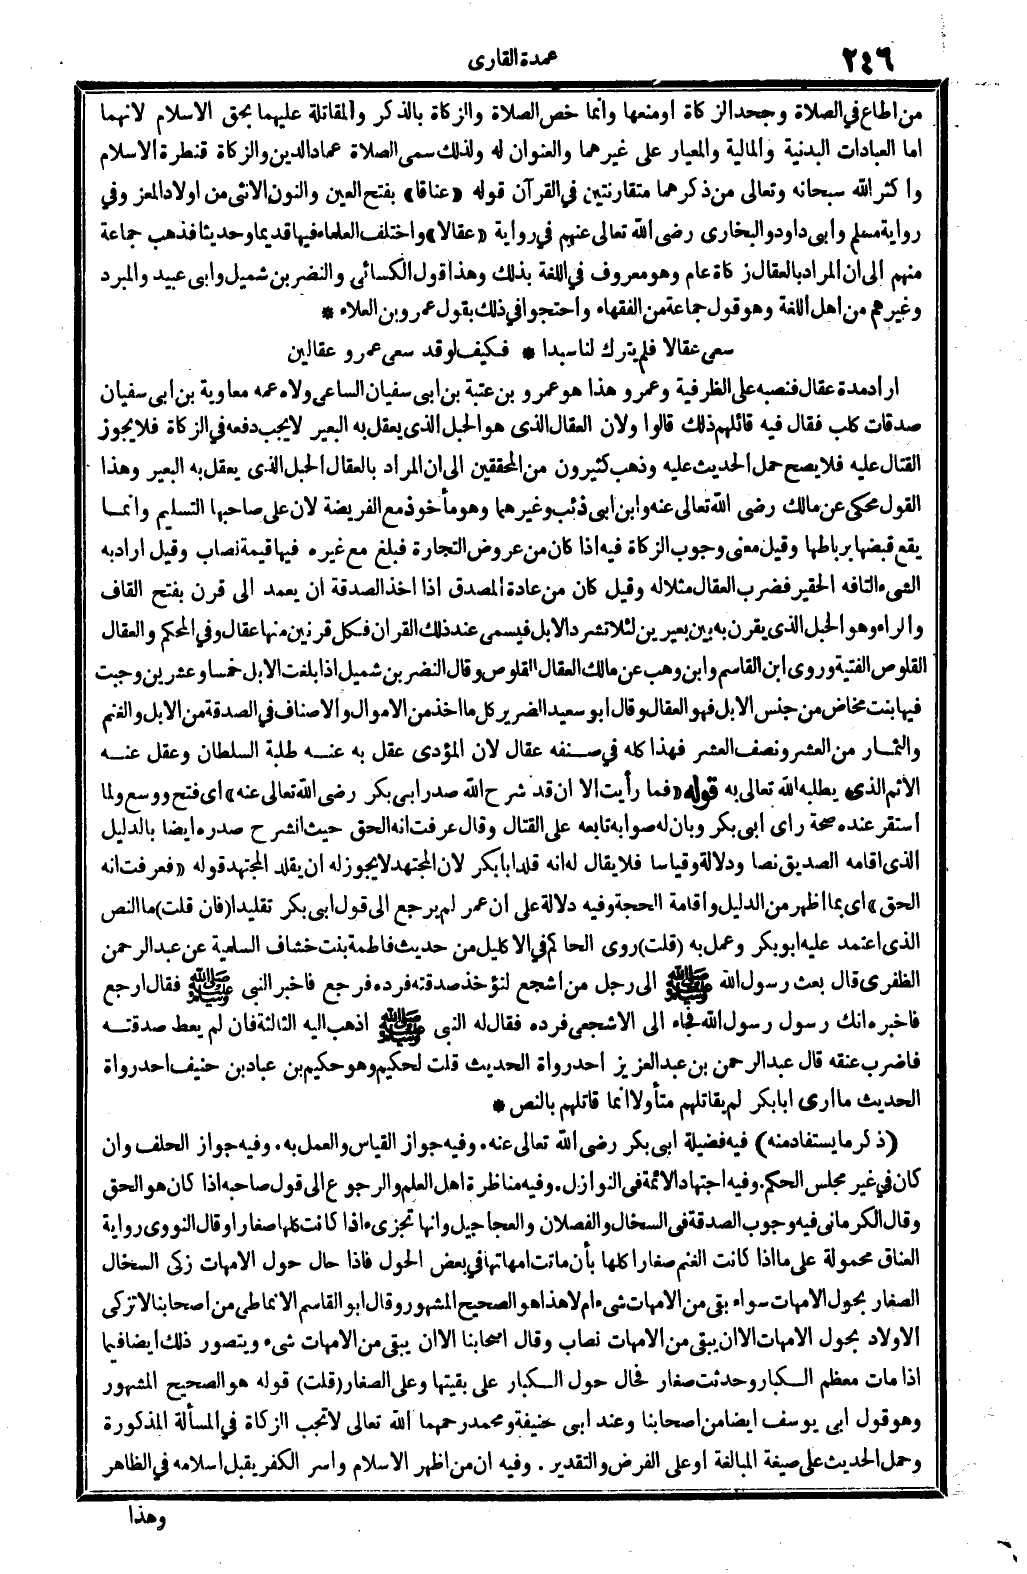 ٢٤٦
عمدة القارى
من اطاع في الصلاة وجحد الزكاة اومنعها وانما خص الصلاة والزكاة بالذكر والمقاتلة عليهما بحق الاسلام لانهما
اما العبادات البدنية والمالية والمعيار على غيرهما والعنوان له ولذلك سمى الصلاة عماد الدين والزكاة قنطرة الاسلام
واكثر الله سبحانه وتعالى من ذكرهما متقارنتين في القرآن قوله «عناقا» بفتح العين والنون الانثى من اولاد المعز وفي
رواية مسلم وابى داود والبخارى رضى الله تعالى عنهم في رواية «عقالا» واختلف العلماء فيها قديما وحديثا فذهب جماعة
منهم الى ان المراد بالعقال زكاة عام وهو معروف في اللغة بذلك وهذا قول الكسائى والنضر بن شميل وابى عبيد والمبرد
وغيرهم من اهل اللغة وهو قول جماعة من الفقهاء واحتجوا في ذلك بقول عمرو بن العلاء *
سعى عقالا فلم يترك لنا سبدا * فكيف لو قد سعى عمرو عقالين
اراد مدة عقال فنصبه على الظرفية وعمرو هذا هو عمرو بن عتبة بن ابى سفيان الساعى ولاه عمه معاوية بن ابى سفيان
صدقات كلب فقال فيه قائلهم ذلك قالوا ولان العقال الذى هو الحبل الذى يعقل به البعير لا يجب دفعه في الزكاة فلا يجوز
القتال عليه فلا يصح حمل الحديث عليه وذهب كثيرون من المحققين الى ان المراد بالعقال الحبل الذى يعقل به البعير وهذا
القول محكى عن مالك رضى الله تعالى عنه وابن ابى ذئب وغيرهما وهو مأخوذ مع الفريضة لان على صاحبها التسليم وانما
يقع قبضها برباطها وقيل معنى وجوب الزكاة فيه اذا كان من عروض التجارة فبلغ مع غيره فيها قيمة نصاب وقيل اراد به
الشىء التافه الحقير فضرب العقال مثلا له وقيل كان من عادة المصدق اذا اخذ الصدقة ان يعمد الى قرن بفتح القاف
والراء وهو الحبل الذى يقرن به بين بعيرين لئلا تشرد الابل فيسمى عند ذلك القران فكل قرنين منها عقال وفي المحكم والعقال
القلوص الفتية وروى ابن القاسم وابن وهب عن مالك العقال القلوص وقال النضر بن شميل اذا بلغت الابل خمسا وعشرين وجبت
فيها بنت مخاض من جنس الابل فهو العقال وقال ابو سعيد الضرير كل ما اخذ من الاموال والاصناف في الصدقة من الابل والغنم
والثمار من العشر ونصف العشر فهذا كله في صنفه عقال لان المؤدى عقل به عنه طلبة السلطان وعقل عنه
الاثم الذى يطلبه الله تعالى به قوله «فما رأيت الا ان قد شرح الله صدر ابى بكر رضى الله تعالى عنه» اى فتح ووسع ولما
استقر عنده صحة راى ابى بكر وبان له صوابه تابعه على القتال وقال عرفت انه الحق حيث انشرح صدره ايضا بالدليل
الذى اقامه الصديق نصا ودلالة وقياسا فلا يقال له انه قلد ابا بكر لان المجتهد لا يجوز له ان يقلد المجتهد قوله «فعرفت انه
الحق» اى بما اظهر من الدليل واقامة الحجة وفيه دلالة على ان عمر لم يرجع الى قول ابى بكر تقليدا (فان قلت) ما النص
الذى اعتمد عليه ابو بكر وعمل به (قلت) روى الحاكم في الاكليل من حديث فاطمة بنت خشاف السلمية عن عبد الرحمن
الظفرى قال بعث رسول الله ﷺ الى رجل من اشجع لتؤخذ صدقته فرده فرجع فاخبر النبى ﷺ فقال ارجع
فاخبره انك رسول رسول الله فجاء الى الاشجعى فرده فقال له النبى ﷺ اذهب اليه الثالثة فان لم يعط صدقته
فاضرب عنقه قال عبد الرحمن بن عبد العزيز احد رواة الحديث قلت لحكيم وهو حكيم بن عباد بن حنيف احد رواة
الحديث ما ارى ابا بكر لم يقاتلهم متأولا انما قاتلهم بالنص *
(ذكر ما يستفاد منه) فيه فضيلة ابى بكر رضى الله تعالى عنه. وفيه جواز القياس والعمل به. وفيه جواز الحلف وان
كان في غير مجلس الحكم. وفيه اجتهاد الائمة في النوازل. وفيه مناظرة اهل العلم والرجوع الى قول صاحبه اذا كان هو الحق
وقال الكرمانى فيه وجوب الصدقة فى السخال والفصلان والعجاجيل وانها تجزىء اذا كانت كلها صغارا وقال النووى رواية
العناق محمولة على ما اذا كانت الغنم صغارا كلها بأن ماتت امهاتها في بعض الحول فاذا حال حول الامهات زكى السخال
الصغار بحول الامهات سواء بقى من الامهات شىء ام لا هذا هو الصحيح المشهور وقال ابو القاسم الانماطى من اصحابنا لا تزكى
الاولاد بحول الامهات الا ان يبقى من الامهات نصاب وقال اصحابنا الا ان يبقى من الامهات شىء ويتصور ذلك ايضا فيما
اذا مات معظم الكبار وحدثت صغار فحال حول الكبار على بقيتها وعلى الصغار (قلت) قوله هو الصحيح المشهور
وهو قول ابى يوسف ايضا من اصحابنا وعند ابى حنيفة ومحمد رحمهما الله تعالى لا تجب الزكاة في المسألة المذكورة
وحمل الحديث على صيغة المبالغة او على الفرض والتقدير. وفيه ان من اظهر الاسلام واسر الكفر يقبل اسلامه في الظاهر
وهذا